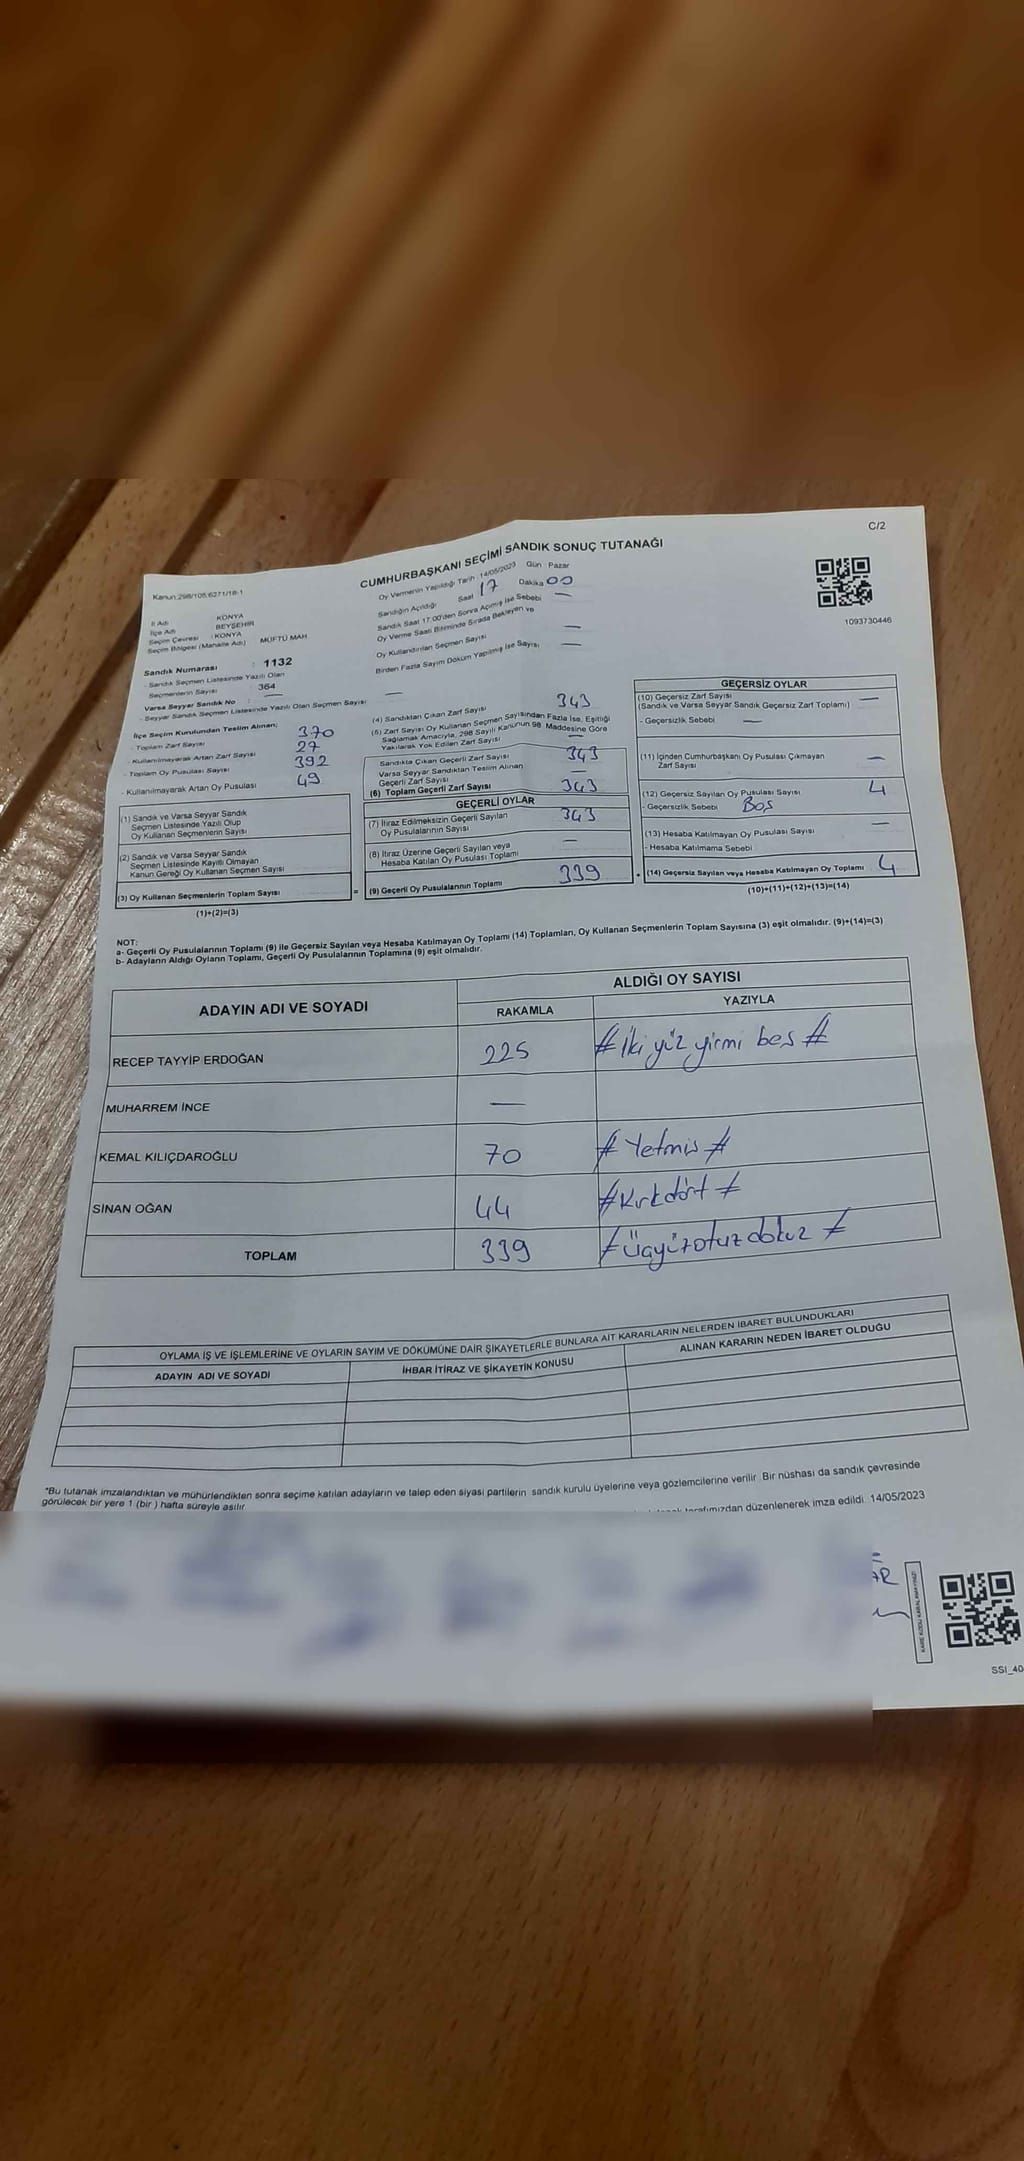 C/2
CUMHURBAŞKANI SEÇİMİ SANDIK SONUÇ TUTANAĞI
Kanun:298/105;6271/18-1
Oy Vermenin Yapıldığı Tarih :14/05/2023 Gün : Pazar
Sandığın Açıldığı Saat 17 Dakika 00
Sandık Saat 17:00'den Sonra Açımış İse Sebebi —
Oy Verme Saati Bitiminde Sırada Bekleyen ve
Oy Kullandırılan Seçmen Sayısı —
Birden Fazla Sayım Döküm Yapılmış İse Sayısı —
1093730446
İl Adı : KONYA
İlçe Adı : BEYŞEHİR
Seçim Çevresi : KONYA
Seçim Bölgesi (Mahalle Adı) MÜFTÜ MAH
Sandık Numarası : 1132
- Sandık Seçmen Listesinde Yazılı Olan
Seçmenlerin Sayısı : 364
Varsa Seyyar Sandık No : —
- Seyyar Sandık Seçmen Listesinde Yazılı Olan Seçmen Sayısı —
İlçe Seçim Kurulundan Teslim Alınan;
- Toplam Zarf Sayısı 370
- Kullanılmayarak Artan Zarf Sayısı 27
- Toplam Oy Pusulası Sayısı 392
- Kullanılmayarak Artan Oy Pusulası 49
(1) Sandık ve Varsa Seyyar Sandık
Seçmen Listesinde Yazılı Olup
Oy Kullanan Seçmenlerin Sayısı
(2) Sandık ve Varsa Seyyar Sandık
Seçmen Listesinde Kayıtlı Olmayan
Kanun Gereği Oy Kullanan Seçmen Sayısı
(3) Oy Kullanan Seçmenlerin Toplam Sayısı
(1)+(2)=(3)
(4) Sandıktan Çıkan Zarf Sayısı 343
(5) Zarf Sayısı Oy Kullanan Seçmen Sayısından Fazla İse, Eşitliği
Sağlamak Amacıyla, 298 Sayılı Kanunun 98. Maddesine Göre
Yakılarak Yok Edilen Zarf Sayısı —
Sandıkta Çıkan Geçerli Zarf Sayısı 343
Varsa Seyyar Sandıktan Teslim Alınan
Geçerli Zarf Sayısı —
(6) Toplam Geçerli Zarf Sayısı 343
GEÇERLİ OYLAR
(7) İtiraz Edilmeksizin Geçerli Sayılan
Oy Pusulalarının Sayısı 343
(8) İtiraz Üzerine Geçerli Sayılan veya
Hesaba Katılan Oy Pusulası Toplamı —
= (9) Geçerli Oy Pusulalarının Toplamı 339
GEÇERSİZ OYLAR
(10) Geçersiz Zarf Sayısı
(Sandık ve Varsa Seyyar Sandık Geçersiz Zarf Toplamı) —
- Geçersizlik Sebebi —
(11) İçinden Cumhurbaşkanı Oy Pusulası Çıkmayan
Zarf Sayısı —
(12) Geçersiz Sayılan Oy Pusulası Sayısı 4
- Geçersizlik Sebebi Boş
(13) Hesaba Katılmayan Oy Pusulası Sayısı —
- Hesaba Katılmama Sebebi
+ (14) Geçersiz Sayılan veya Hesaba Katılmayan Oy Toplamı 4
(10)+(11)+(12)+(13)=(14)
NOT:
a- Geçerli Oy Pusulalarının Toplamı (9) ile Geçersiz Sayılan veya Hesaba Katılmayan Oy Toplamı (14) Toplamları, Oy Kullanan Seçmenlerin Toplam Sayısına (3) eşit olmalıdır. (9)+(14)=(3)
b- Adayların Aldığı Oyların Toplamı, Geçerli Oy Pusulalarının Toplamına (9) eşit olmalıdır.
ADAYIN ADI VE SOYADI
ALDIĞI OY SAYISI
RAKAMLA YAZIYLA
RECEP TAYYİP ERDOĞAN 225 # İki yüz yirmi beş #
MUHARREM İNCE —
KEMAL KILIÇDAROĞLU 70 # Yetmiş #
SİNAN OĞAN 44 # Kırkdört #
TOPLAM 339 # üçyüzotuzdokuz #
OYLAMA İŞ VE İŞLEMLERİNE VE OYLARIN SAYIM VE DÖKÜMÜNE DAİR ŞİKAYETLERLE BUNLARA AİT KARARLARIN NELERDEN İBARET BULUNDUKLARI
ADAYIN ADI VE SOYADI İHBAR İTİRAZ VE ŞİKAYETİN KONUSU ALINAN KARARIN NEDEN İBARET OLDUĞU
*Bu tutanak imzalandıktan ve mühürlendikten sonra seçime katılan adayların ve talep eden siyasi partilerin sandık kurulu üyelerine veya gözlemcilerine verilir. Bir nüshası da sandık çevresinde
görülecek bir yere 1 (bir ) hafta süreyle asılır.
tarafımızdan düzenlenerek imza edildi. 14/05/2023
SSI_40